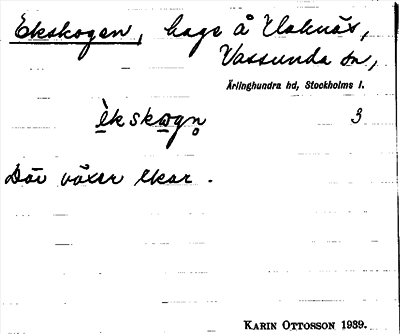 Ekskogen, hage å Vloknäs,
Vassunda sn,
Ärlinghundra hd, Stockholms l.
èkskωgn̥ 3
Där växer ekar.
KARIN OTTOSSON 1939.